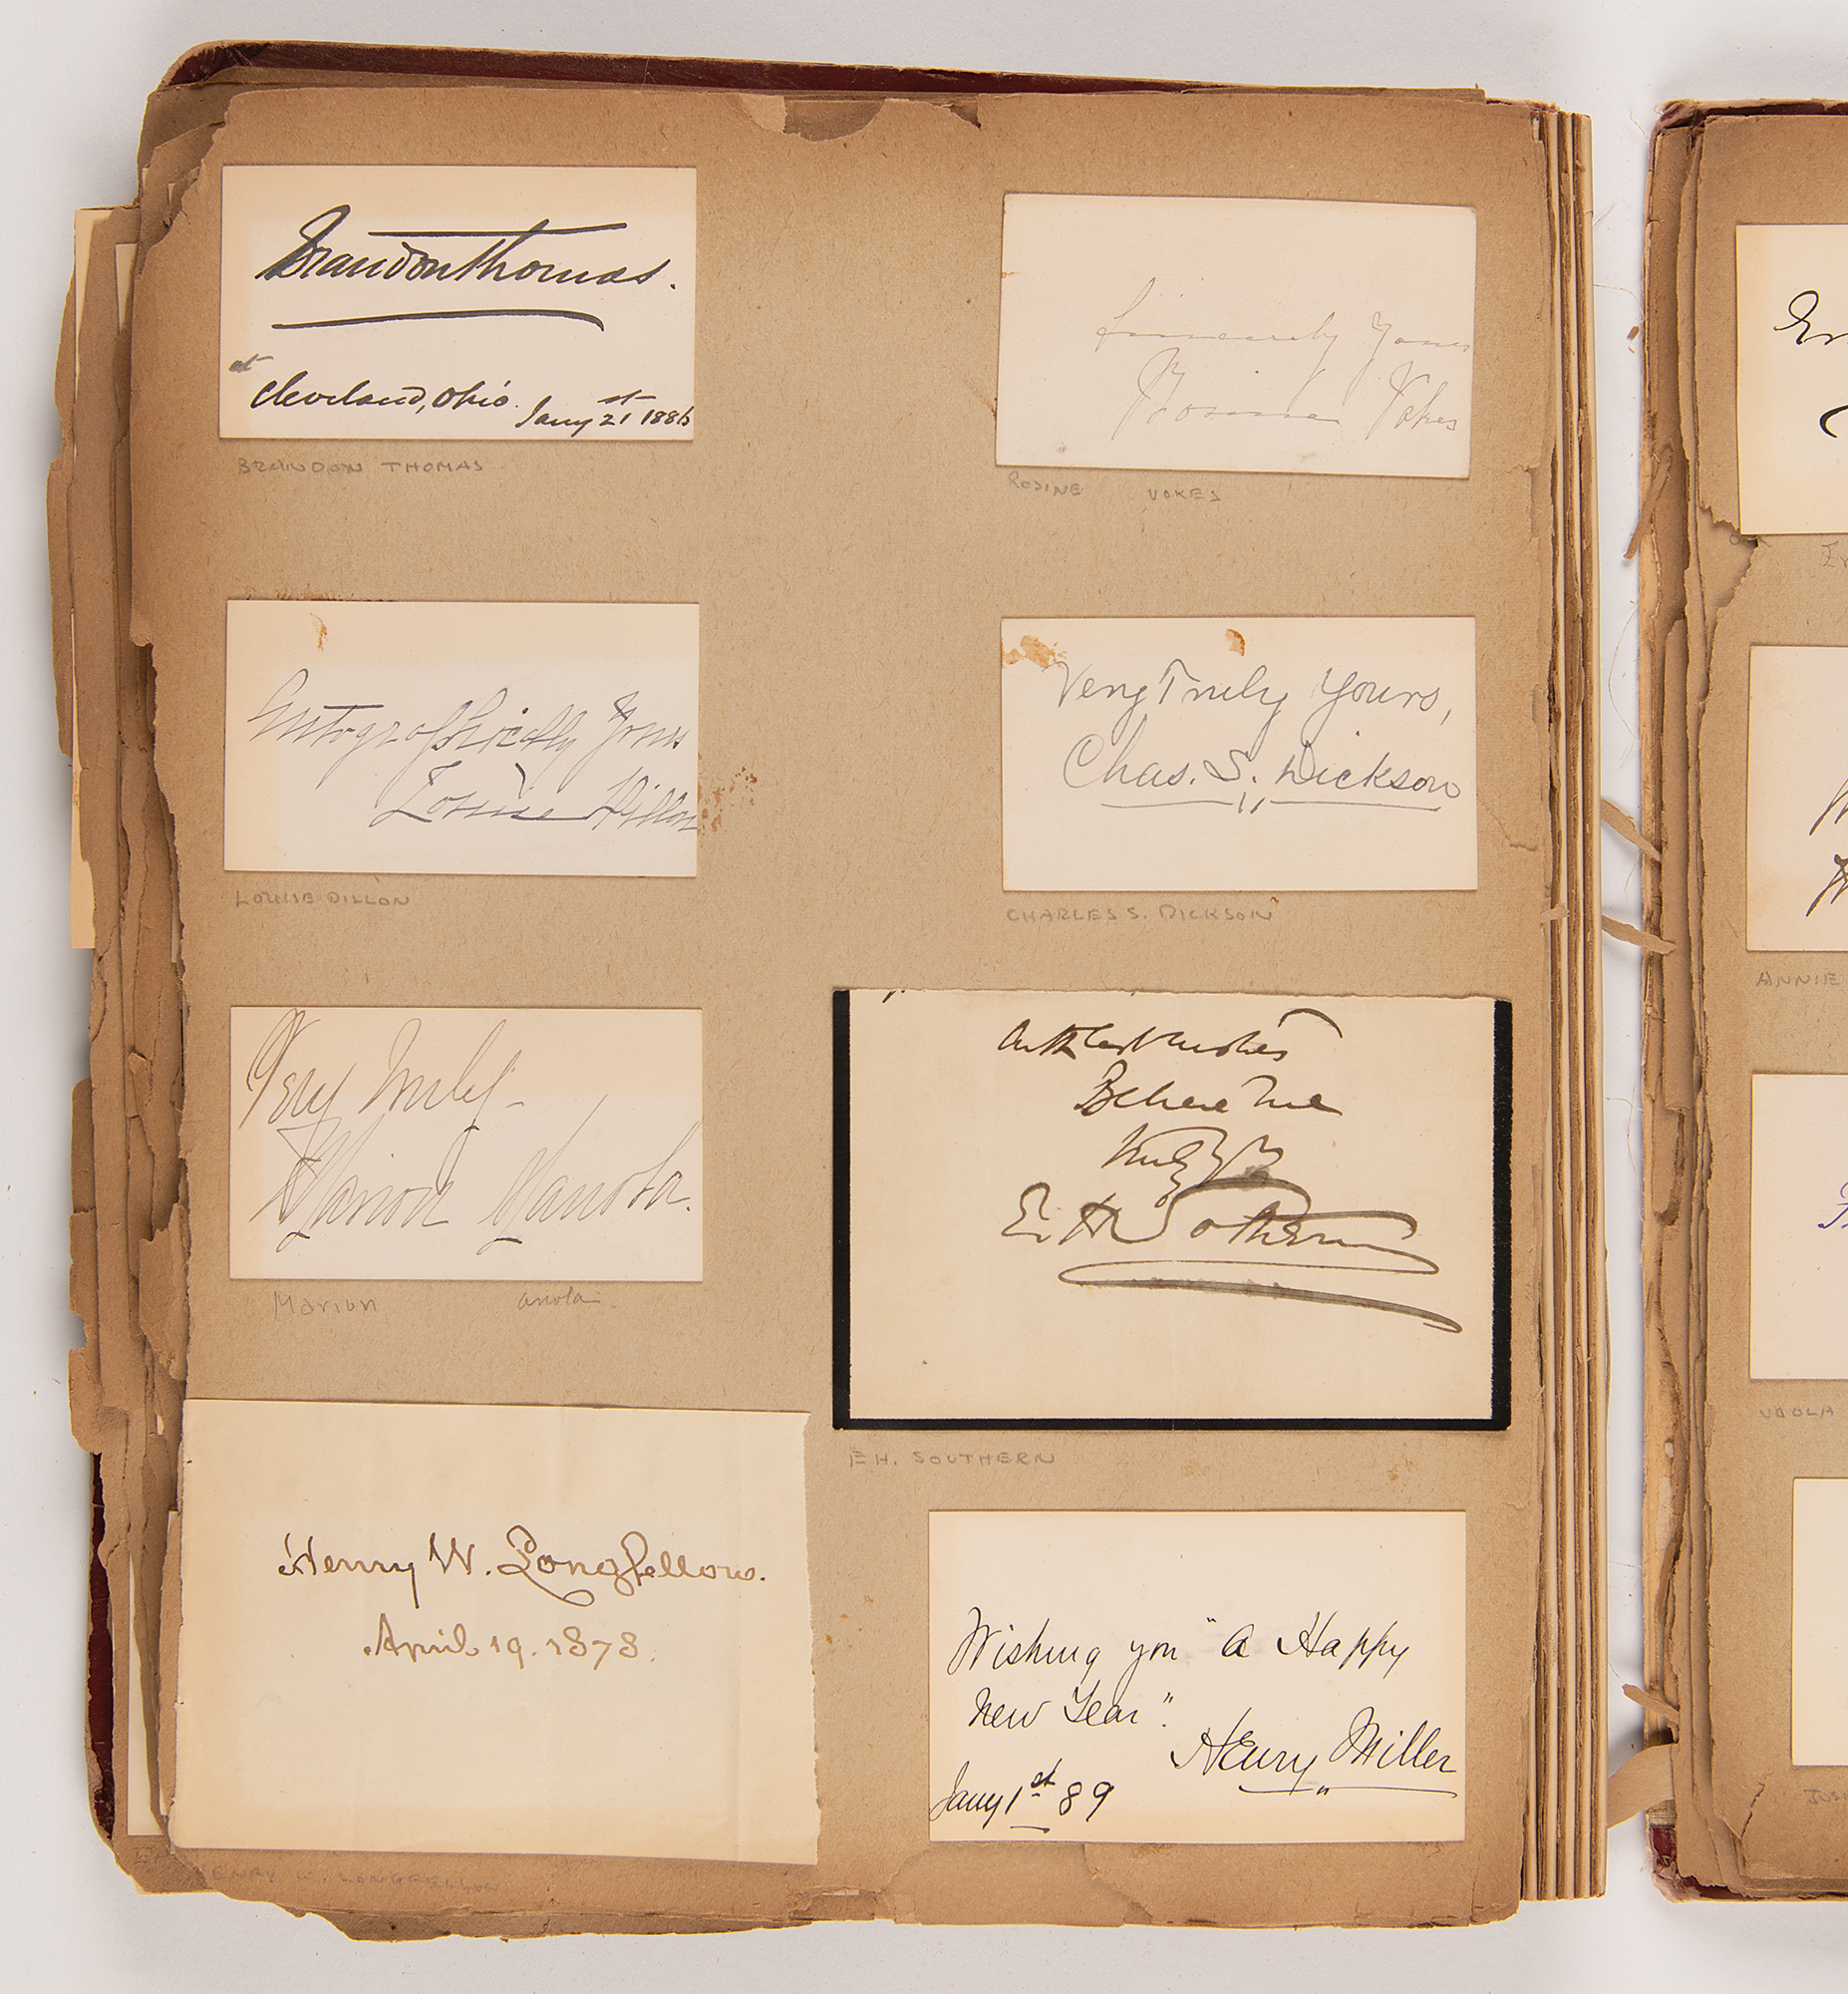 Brandon Thomas.
at
Cleveland, Ohio. Jany 21st 1886
BRANDON THOMAS
Sincerely Yours
Rosina Vokes
ROSINE VOKES
Autographically Yours
Louise Dillon
LOUISE DILLON
Very Truly Yours,
Chas. S. Dickson
CHARLES S. DICKSON
Very Truly -
Marion Manola.
Marion anola
With best wishes
Believe me
Truly Yrs
E. H. Sothern
E H. SOUTHERN
Henry W. Longfellow.
April 19. 1878.
ENRY W. LONGFELLOW
Wishing you "A Happy
New Year".
Henry Miller
Jany 1st 89
ANNIE